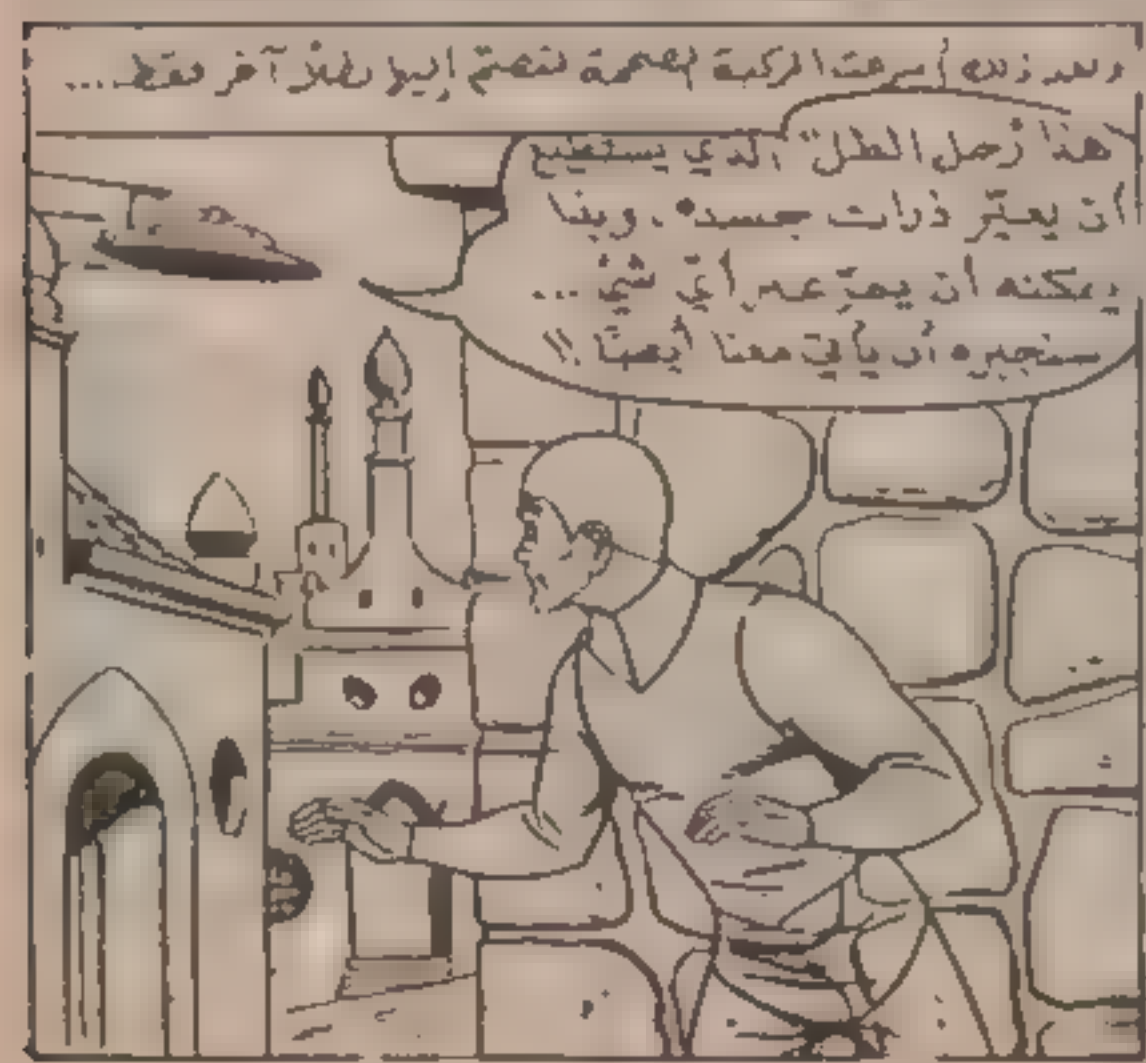 وبعد ذلك أسرعت المركبة الضخمة لتضمّ إليها بطلاً آخر فقط...
هذا "رجل الظل" الذي يستطيع
أن يغيّر ذرات جسده، وبذا
يمكنه أن يمرّ عبر أيّ شيْ ...
سنجبره أن يأتي معنا أيضًا !!